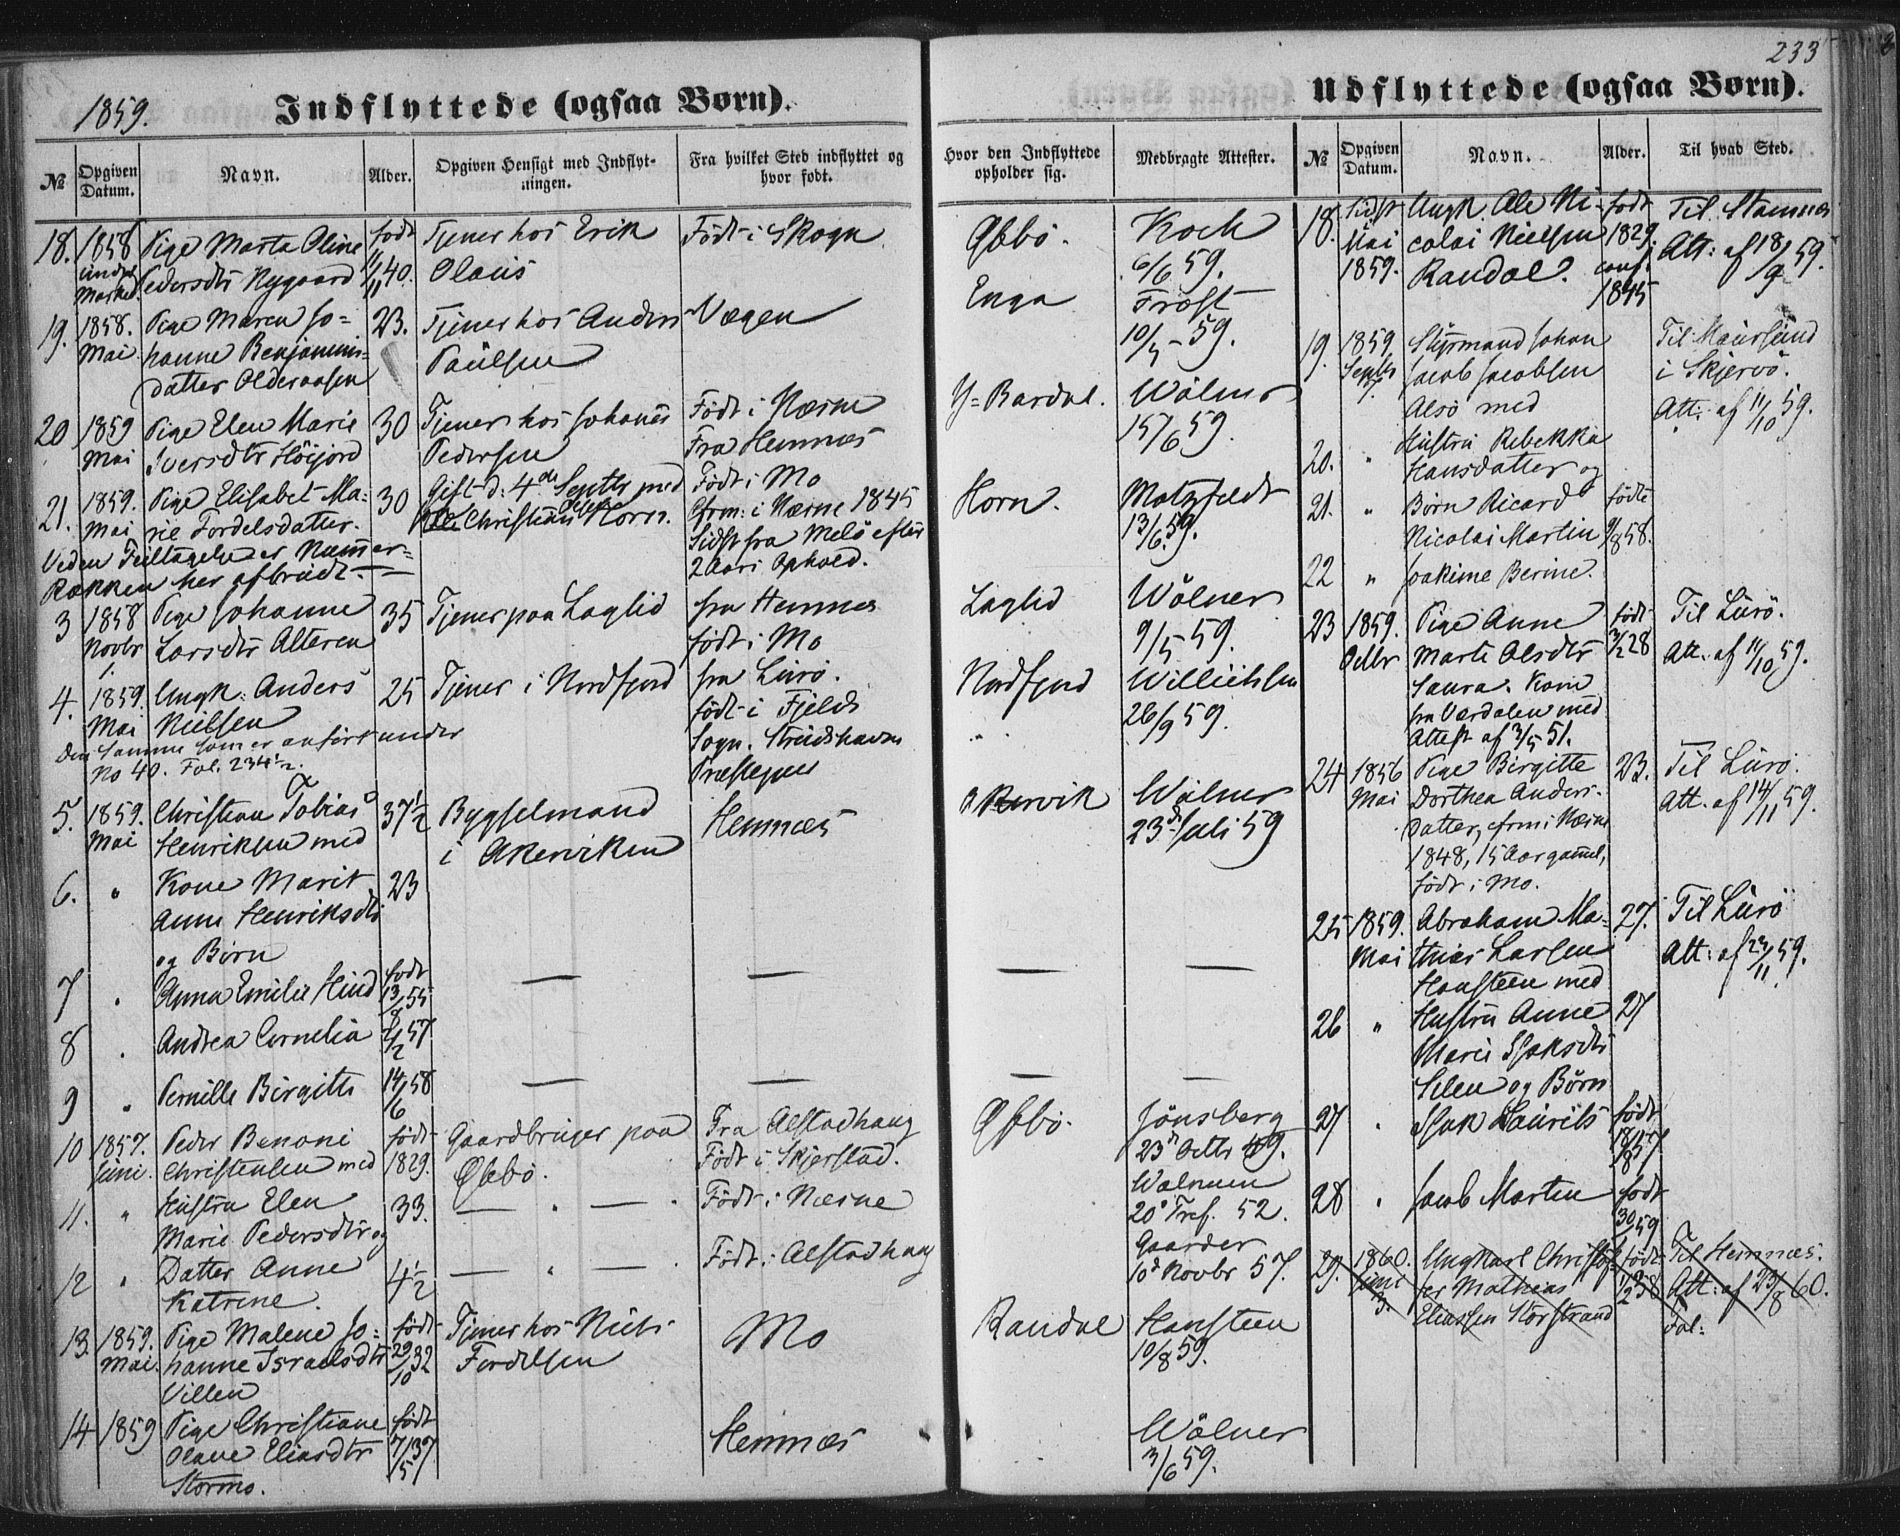 233
1859.
Indflyttede (ogsaa Børn).
Udflyttede (ogsaa Børn).
№
Opgiven Datum.
Navn.
Alder.
Opgiven Hensigt med Indflyt-
ningen.
Fra hvilket Sted indflyttet og
hvor født.
Hvor den Indflyttede
opholder sig.
Medbragte Attester.
№
Opgiven Datum.
Navn.
Alder.
Til hvad Sted.
18. 1858 Pige Marta Oline født Tjener hos Erik Født i Skogn Øbbö. Koch
under Marked Pedersdtr Nygaard 11/11 40. Olaus 6/6 59.
19. 1858. Pige Maren Jo= 23. Tjener hos Anders Vægen Enga Frost
Mai hanne Benjamins= Paulsen 10/5 - 59.
datter Olderaasen
20 1859 Pige Elen Marie 30 Tjener hos Johanes Født i Næsne Y= Bardal. Wölner
Mai Iversdtr Höijord Pedersen Fra Hemnæs 15/6 59.
21. 1859. Pige Elisabet Ma= 30 Gift d: 4de Septbr med Født i Mo Horn. Motzfeldt
Mai rie Fordelsdatter. Christian Horn. Cfrm: i Næsne 1845 13/6 59.
Sidst fra Melö efter
2 Aars Ophold.
Ved en Feiltagelse er Nummer=
Rækken her afbrudt.
3 1858 Pige Johanne 35 Tjener paa Laglid fra Hemnæs Laglid Wölner
Novbr 1. Larsdtr Alteren født i Mo 9/5 59.
4. 1859. Ungk: Anders 25 Tjener i Nordfjord fra Lurö. Nordfjord
Mai Nielsen født i Fjelds 26/9 59.
Den samme som er anført under Sogn.
No 40. Fol. 234 1/2. Præstegjeld
5. 1859. Christian Tobias 37 1/2 Bygselmand Hemnæs Wölner
Mai Henriksen med i Akerviken 23de Juli 59
6. " Kone Marit 23
Anne Henriksdtr
og Börn
7 " Anna Emilie Hind født 13/8 55 — — — —
8 " Andrea Cornelia 2/2 57
9 " Pernille Birgitte 14/6 58 — — — —
10 1857. Peder Benoni født Gaardbruger paa Fra Alstadhaug Øbbö. Jönsberg
Juni. Christensen med 1829. Øbbö. Født i Skjerstad. 23de Octbr 49.
11. " Hustru Elen 33. — " — . Født i Næsne
Marie Pedersdtr og 20 Tref. 52.
12 " Datter Anne 4 1/2 — " — . Født i Alstadhaug Gaarder
Katrine. 10de Novbr 57.
13. 1859. Pige Malene Jo= født Tjener hos Niels Mo Randal Hansteen
Mai. hanne Israelsdtr 29/10 32 Fordelsen 10/8 59.
Villen
14 1859 Pige Christiane født Hemnæs Wölner
Olave Eliasdtr 7/5 37 3/6 59.
Stormo.
18. Sidst Ungk Ole Ni= født Til Stamnæs
Mai colai Nielsen 1829. Att: af 18/9 59.
1859. Randal. conf. 1845
19. 1859 Styrmand Johan Til Maursund
Septbr Jacob Jacobsen i Skjervö.
Alsö med Att: af 11/10 59.
20. " Hustru Rebekka
Hansdatter og
21. " Børn Ricard født
Nicolai Martin 9/8 58.
22 " Joakime Berine.
23 1859. Pige Anne født Til Lurö.
Octbr Marte Olsdtr 3/2 28 Att. af 11/10 59.
Saura. Kom
fra Værdalen med
Attest af 3/5 51.
24 1856 Pige Birgitte 23. Til Lurö.
Mai Dorthea Anders- Att. af 14/11 59.
datter, cfrm i Næsne
1848, 15 Aar gammel,
født i Mo.
25 1859. Abraham Ma= 27. Til Lurö
Mai thias Larsen Att: af 22/11 59.
Hansteen med
26 " Hustru Anne 27
Marie Isaksdtr
Selen og Børn
27 " Isak Laurits født 18/8 57
28 " Jacob Martin født 30/ 59
29. 1860. Ungkarl Christof= født Til Hemnæs.
Juni 3. fer Mathias 1/2 38 Att: af 23/8 60.
Eliassen Storstrand Fol: